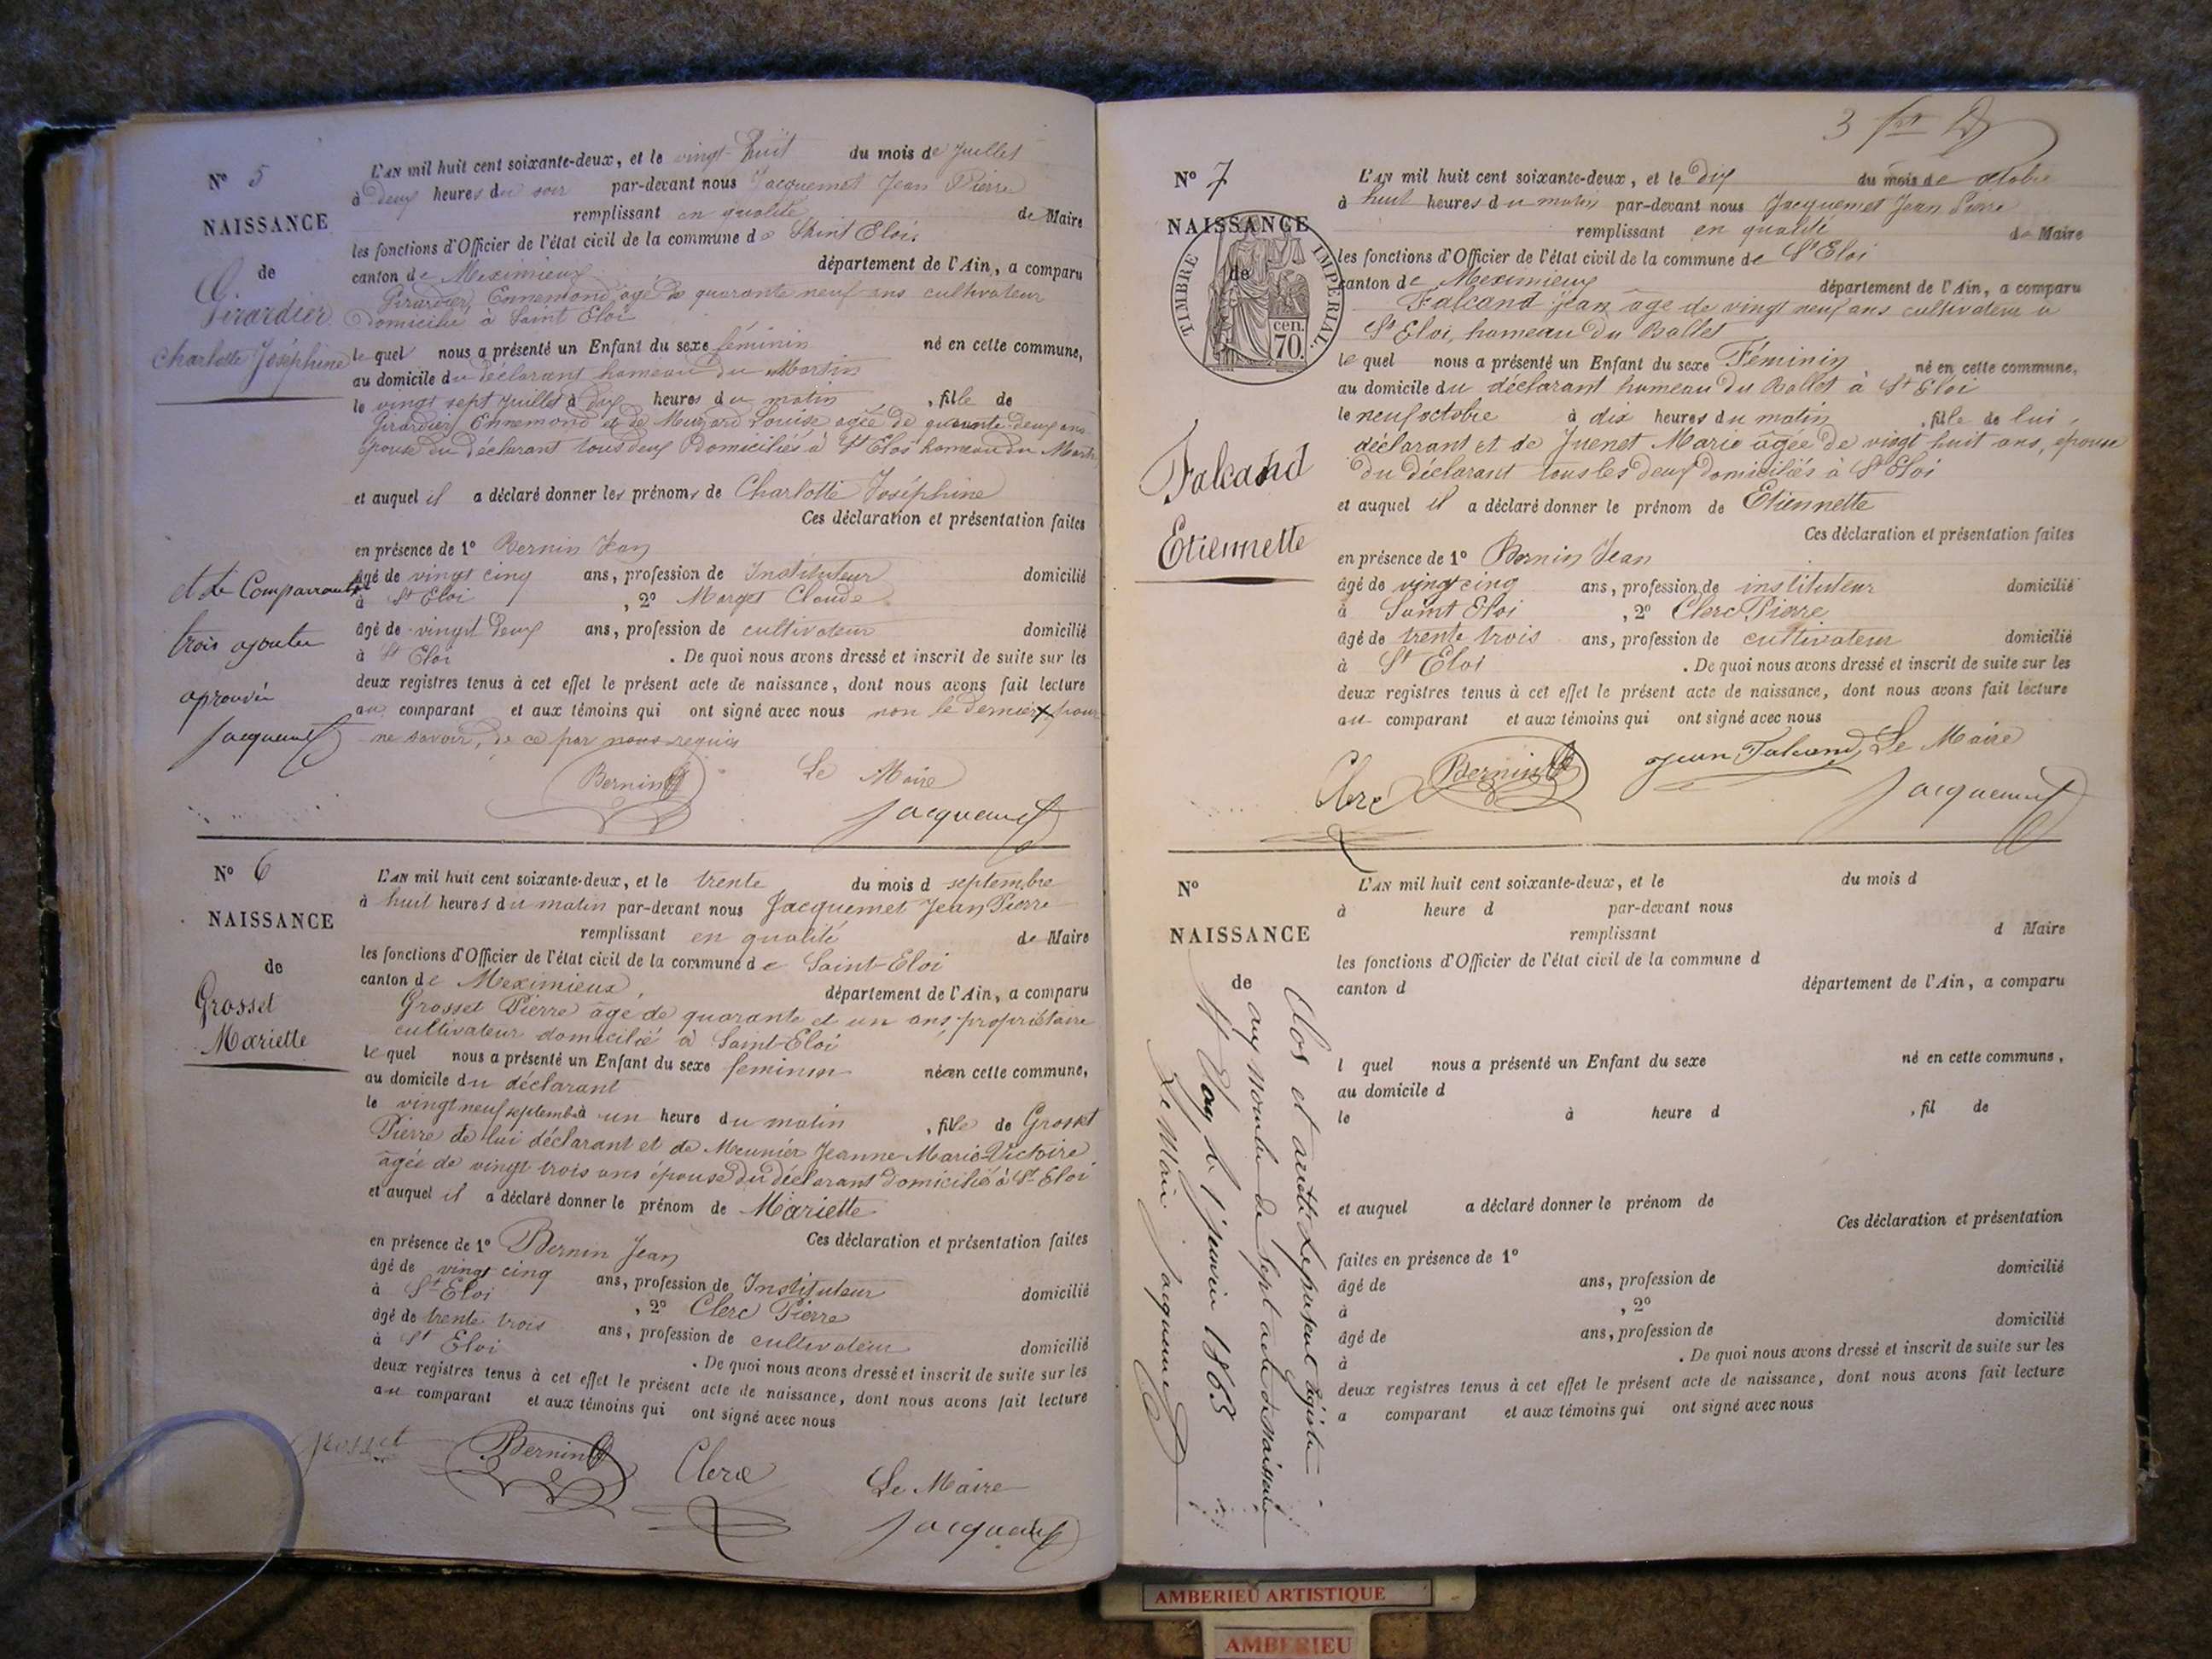 N° 5
NAISSANCE
de
Girardier
Charlotte Joséphine
L'AN mil huit cent soixante-deux, et le vingt-huit du mois de Juillet
à deux heures du soir par-devant nous Jacquemet Jean Pierre
remplissant en qualité de Maire
les fonctions d'Officier de l'état civil de la commune de Saint Eloi
canton de Meximieux département de l'Ain, a comparu
Girardier Ennemond âgé de quarante neuf ans cultivateur
domicilié à Saint Eloi
lequel nous a présenté un Enfant du sexe féminin né en cette commune,
au domicile du déclarant hameau du Martin
le vingt sept Juillet à dix heures du matin, fille de
Girardier Ennemond et de Louise agée de quarante-deux ans
épouse du déclarant tous deux Domiciliés à St Eloi hameau du
et auquel il a déclaré donner les prénoms de Charlotte Joséphine
Ces déclaration et présentation faites
en présence de 1° Bernin Jean
âgé de vingt cinq ans, profession de Instituteur domicilié
à St Eloi, 2° Claude
âgé de vingt deux ans, profession de cultivateur domicilié
à St Eloi. De quoi nous avons dressé et inscrit de suite sur les
deux registres tenus à cet effet le présent acte de naissance, dont nous avons fait lecture
au comparant et aux témoins qui ont signé avec nous non le dernier x pour
ne savoir, de ce par nous requis
et le Comparant
trois
Jacquemet
Bernin Le Maire
Jacquemet
N° 6
NAISSANCE
de
Grosset
Mariette
L'AN mil huit cent soixante-deux, et le trente du mois d septembre
à huit heures du matin par-devant nous Jacquemet Jean Pierre
remplissant en qualité de Maire
les fonctions d'Officier de l'état civil de la commune de Saint-Eloi
canton de Meximieux, département de l'Ain, a comparu
Grosset Pierre âgé de quarante et un ans, propriétaire
cultivateur domicilié à Saint-Eloi
lequel nous a présenté un Enfant du sexe féminin née en cette commune,
au domicile du déclarant
le vingt neuf septembre à un heure du matin, fille de Grosset
Pierre de lui déclarant et de Meunier Jeanne Marie Victoire
agée de vingt trois ans épouse du déclarant domiciliés à St Eloi
et auquel il a déclaré donner le prénom de Mariette
Ces déclaration et présentation faites
en présence de 1° Bernin Jean
âgé de vingt cinq ans, profession de Instituteur domicilié
à St Eloi, 2° Clerc Pierre
âgé de trente trois ans, profession de cultivateur domicilié
à St Eloi. De quoi nous avons dressé et inscrit de suite sur les
deux registres tenus à cet effet le présent acte de naissance, dont nous avons fait lecture
au comparant et aux témoins qui ont signé avec nous
Grosset Bernin Clerc Le Maire
Jacquemet
3
N° 7
NAISSANCE
de
TIMBRE IMPERIAL
cen.
70.
Falcand
Etiennette
L'AN mil huit cent soixante-deux, et le dix du mois de octobre
à huit heures du matin par-devant nous Jacquemet Jean Pierre
remplissant en qualité de Maire
les fonctions d'Officier de l'état civil de la commune de St Eloi
canton de Meximieux département de l'Ain, a comparu
Falcand Jean âgé de vingt neuf ans cultivateur à
St Eloi, hameau du Ballet
lequel nous a présenté un Enfant du sexe Féminin né en cette commune,
au domicile du déclarant hameau du Ballet à St Eloi
le neuf octobre à dix heures du matin, fille de lui,
déclarant et de Juenet Marie agée de vingt huit ans, épouse
du déclarant tous les deux domiciliés à St Eloi
et auquel il a déclaré donner le prénom de Etiennette
Ces déclaration et présentation faites
en présence de 1° Bernin Jean
âgé de vingt cinq ans, profession de instituteur domicilié
à Saint Eloi, 2° Clerc Pierre
âgé de trente trois ans, profession de cultivateur domicilié
à St Eloi. De quoi nous avons dressé et inscrit de suite sur les
deux registres tenus à cet effet le présent acte de naissance, dont nous avons fait lecture
au comparant et aux témoins qui ont signé avec nous
Clerc Bernin Jean Falcand Le Maire
Jacquemet
N°
NAISSANCE
de
L'AN mil huit cent soixante-deux, et le du mois d
à heure d par-devant nous
remplissant d Maire
les fonctions d'Officier de l'état civil de la commune d
canton d département de l'Ain, a comparu
l quel nous a présenté un Enfant du sexe né en cette commune,
au domicile d
le à heure d, fil de
et auquel a déclaré donner le prénom de
Ces déclaration et présentation
faites en présence de 1°
âgé de ans, profession de domicilié
à, 2°
âgé de ans, profession de domicilié
à. De quoi nous avons dressé et inscrit de suite sur les
deux registres tenus à cet effet le présent acte de naissance, dont nous avons fait lecture
a comparant et aux témoins qui ont signé avec nous
Clos et arrêté le présent registre
au nombre de sept acte de naissance
St Eloy le 1 janvier 1863
Le Maire Jacquemet
AMBERIEU ARTISTIQUE
AMBERIEU